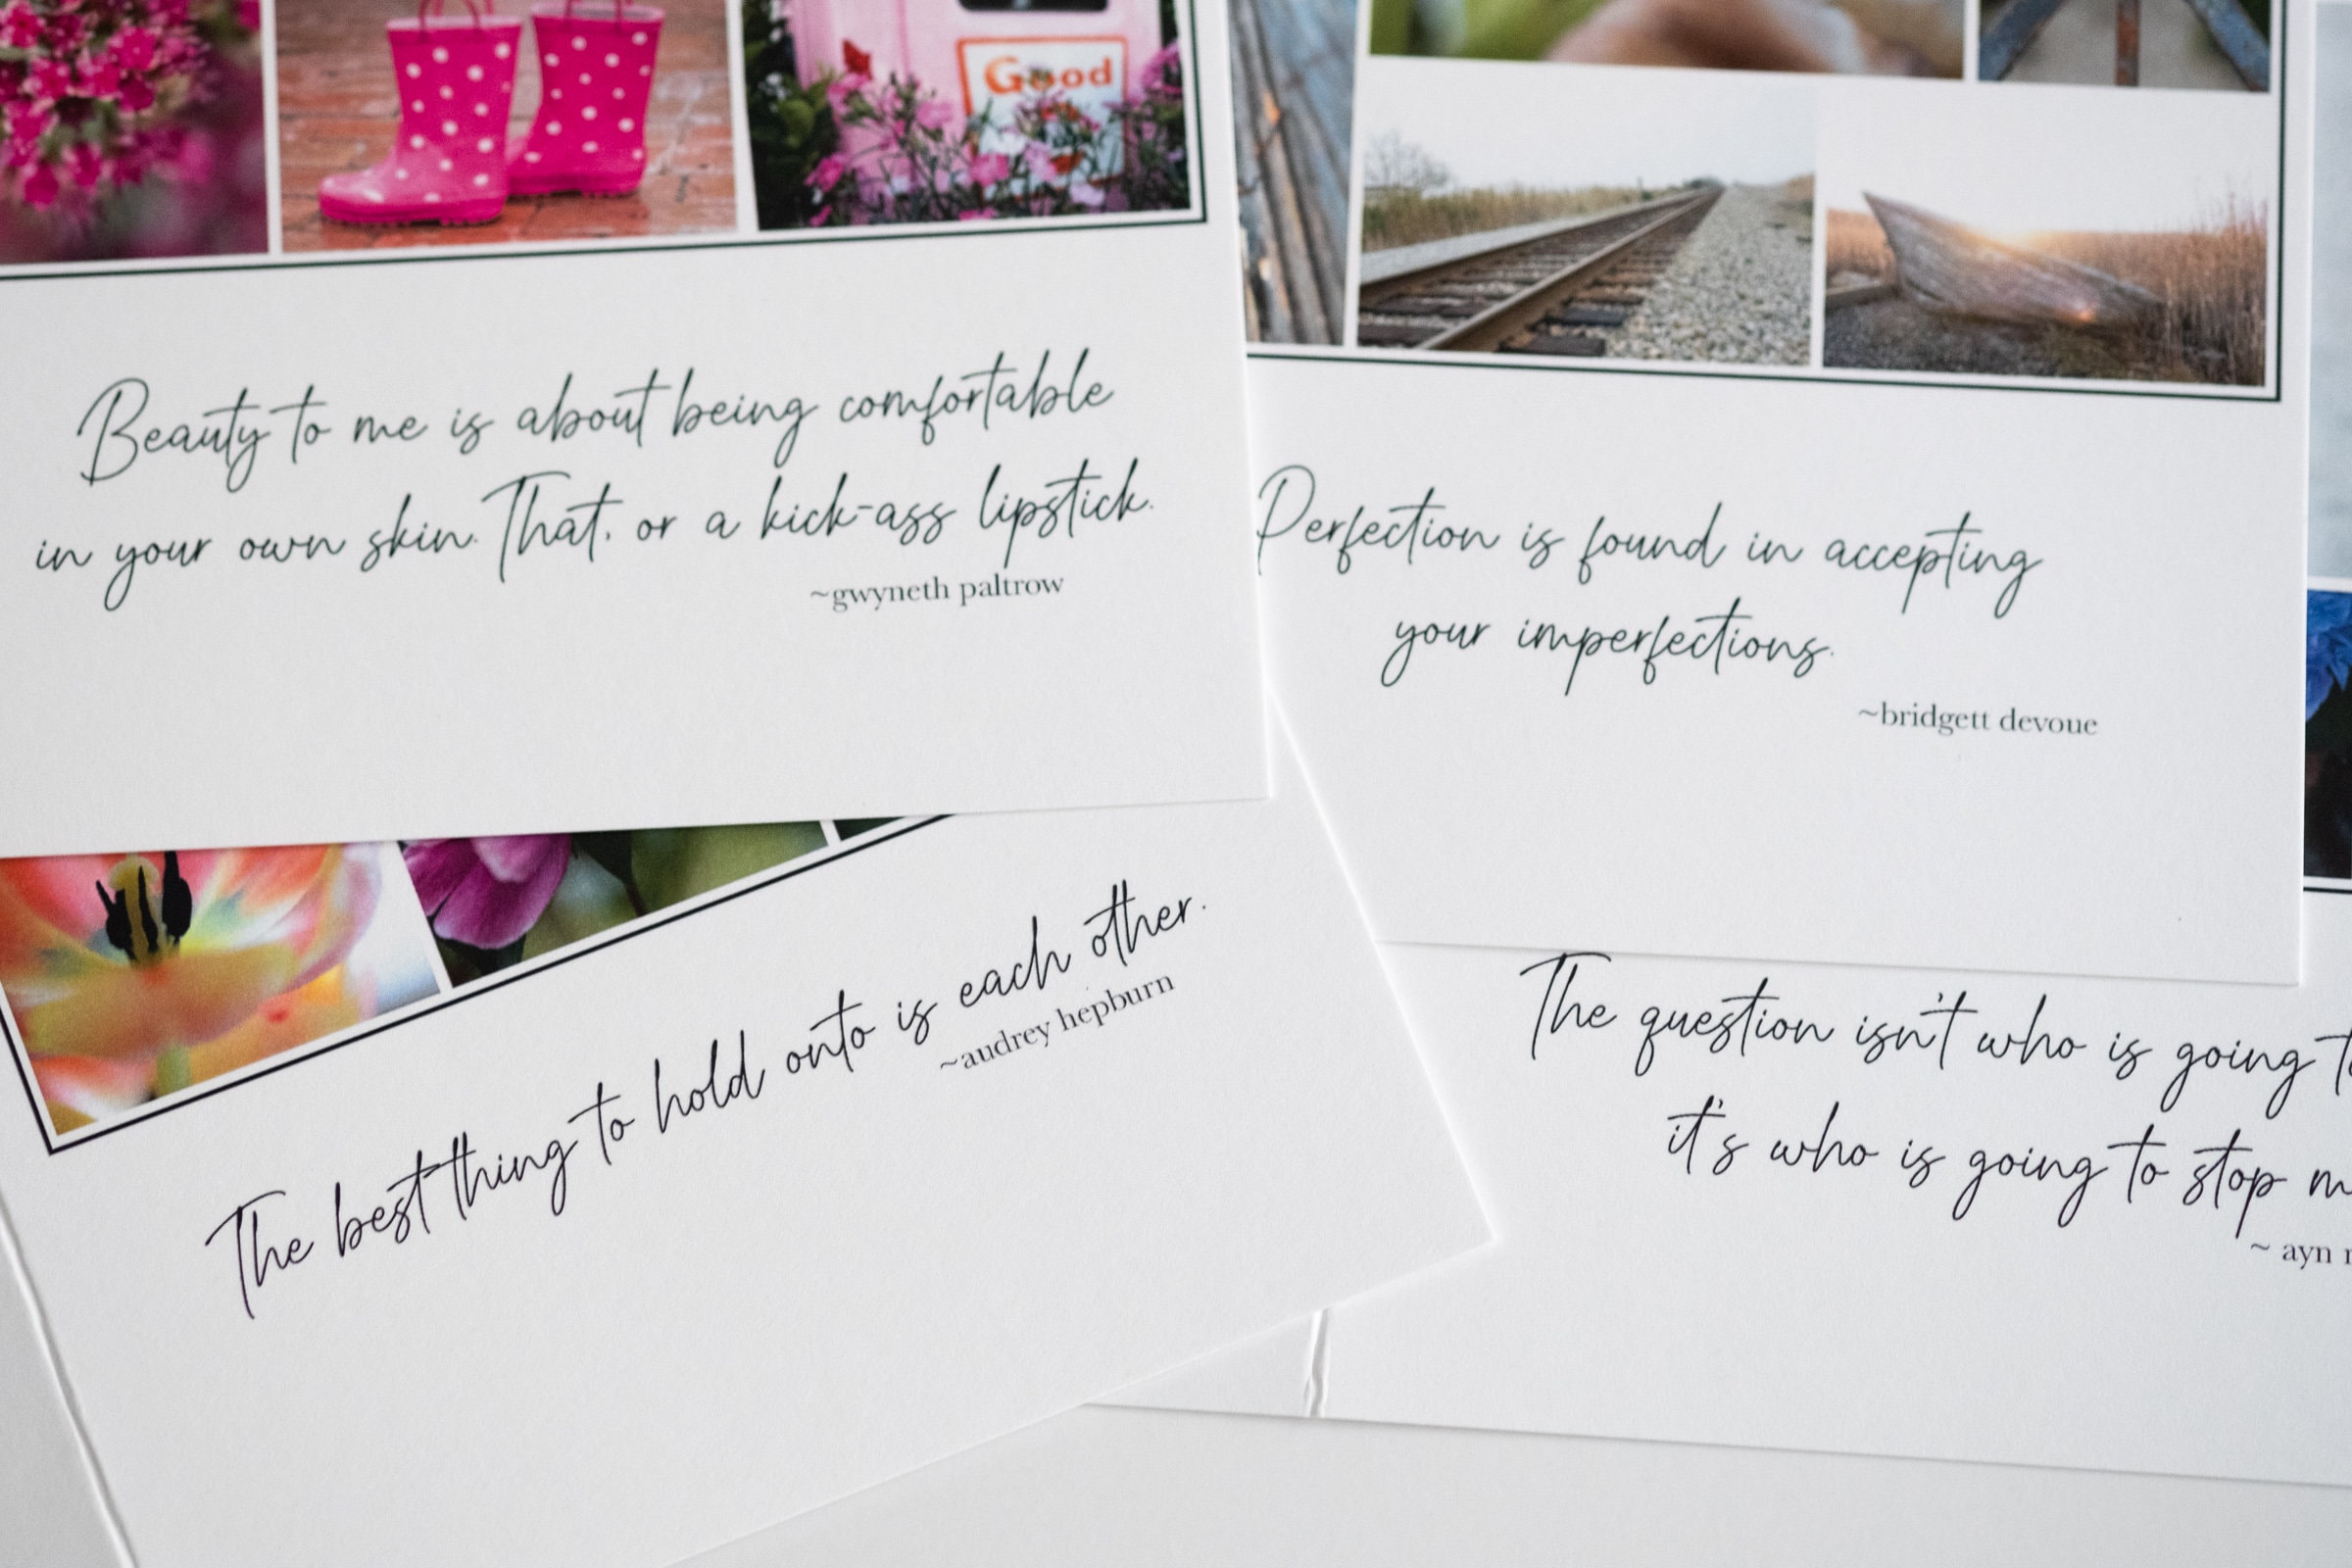 Good
Beauty to me is about being comfortable
in your own skin. That, or a kick-ass lipstick.
~gwyneth paltrow
Perfection is found in accepting
your imperfections.
~bridgett devoue
The best thing to hold onto is each other.
~audrey hepburn
The question isn't who is going
it's who is going to stop
~ ayn